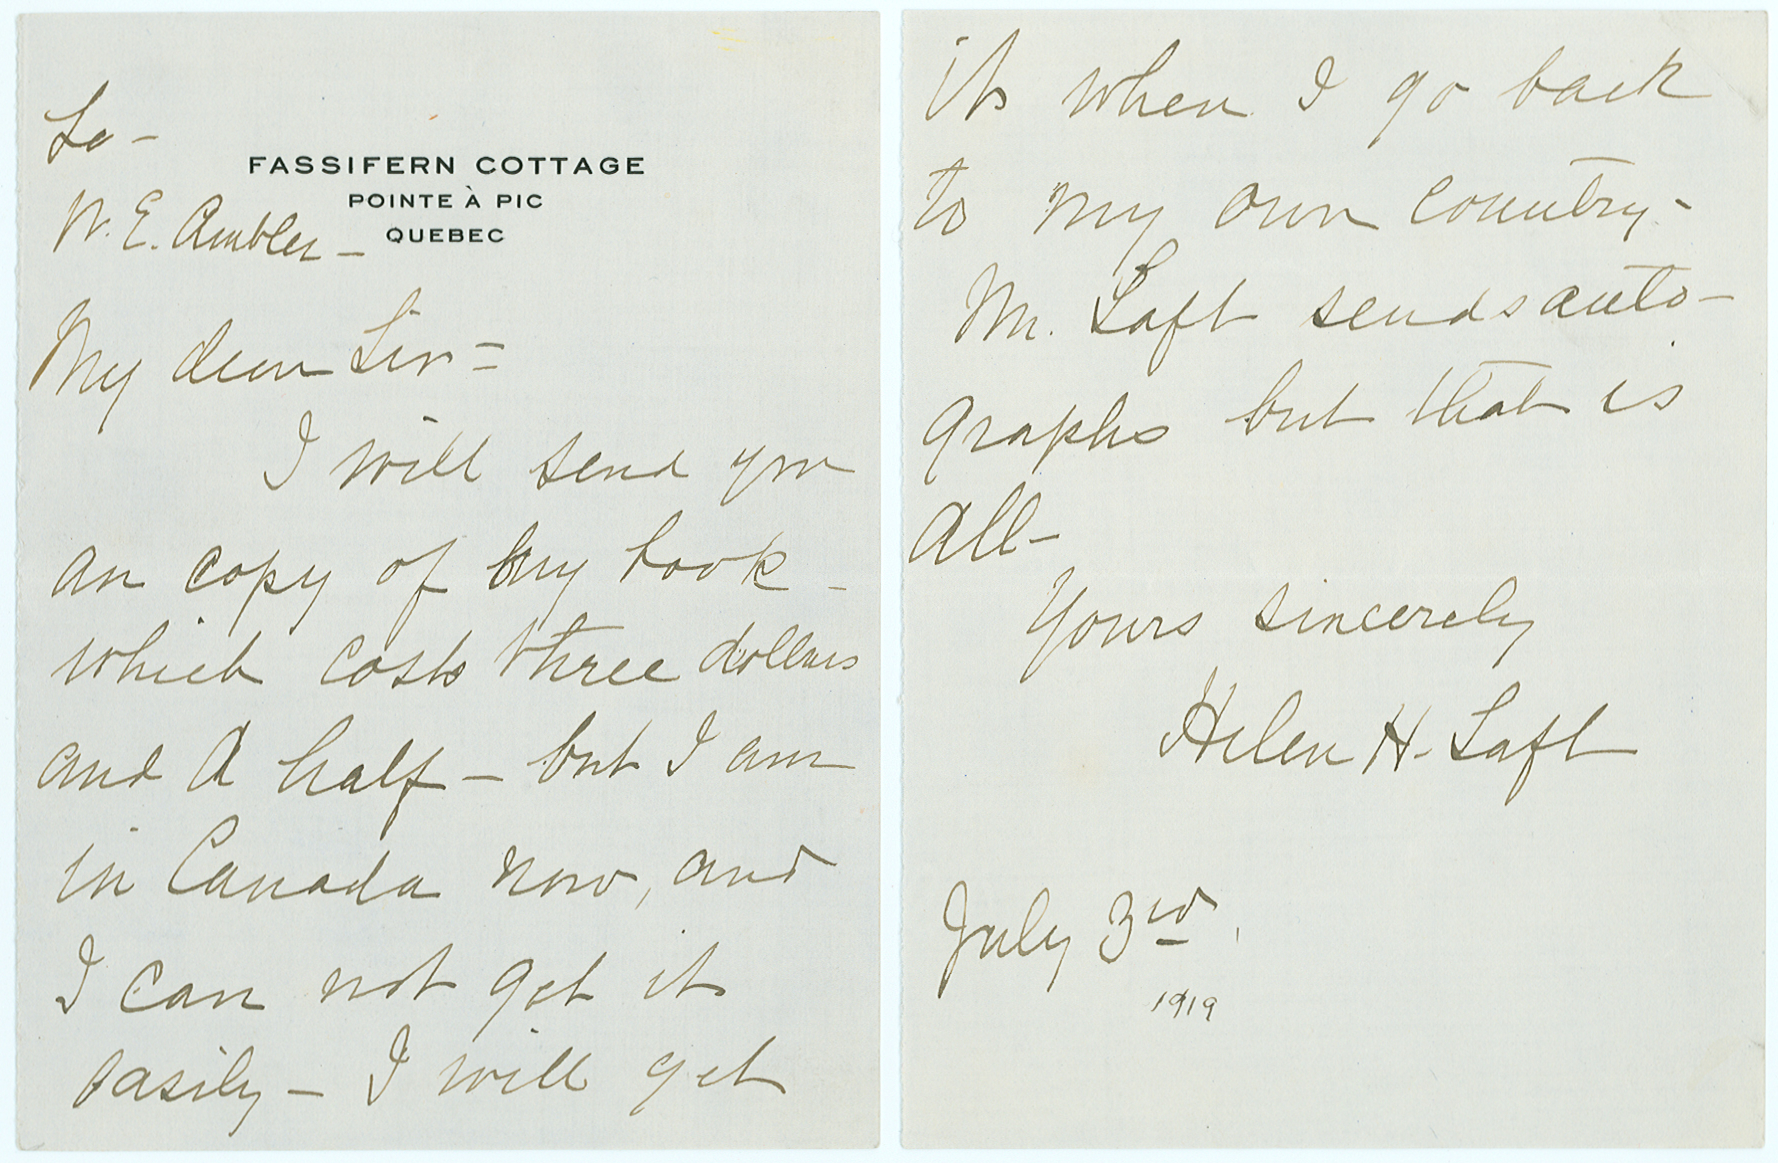 To -
FASSIFERN COTTAGE
POINTE À PIC
QUEBEC
W. E. Ambler -
My dear Sir =
I will send you
an copy of my book -
which costs three dollars
and a half - but I am
in Canada now, and
I can not get it
easily - I will get
it when I go back
to my own country -
Mr. Taft sends auto-
graphs but that is
all -
Yours sincerely
Helen H. Taft
July 3rd.
1919